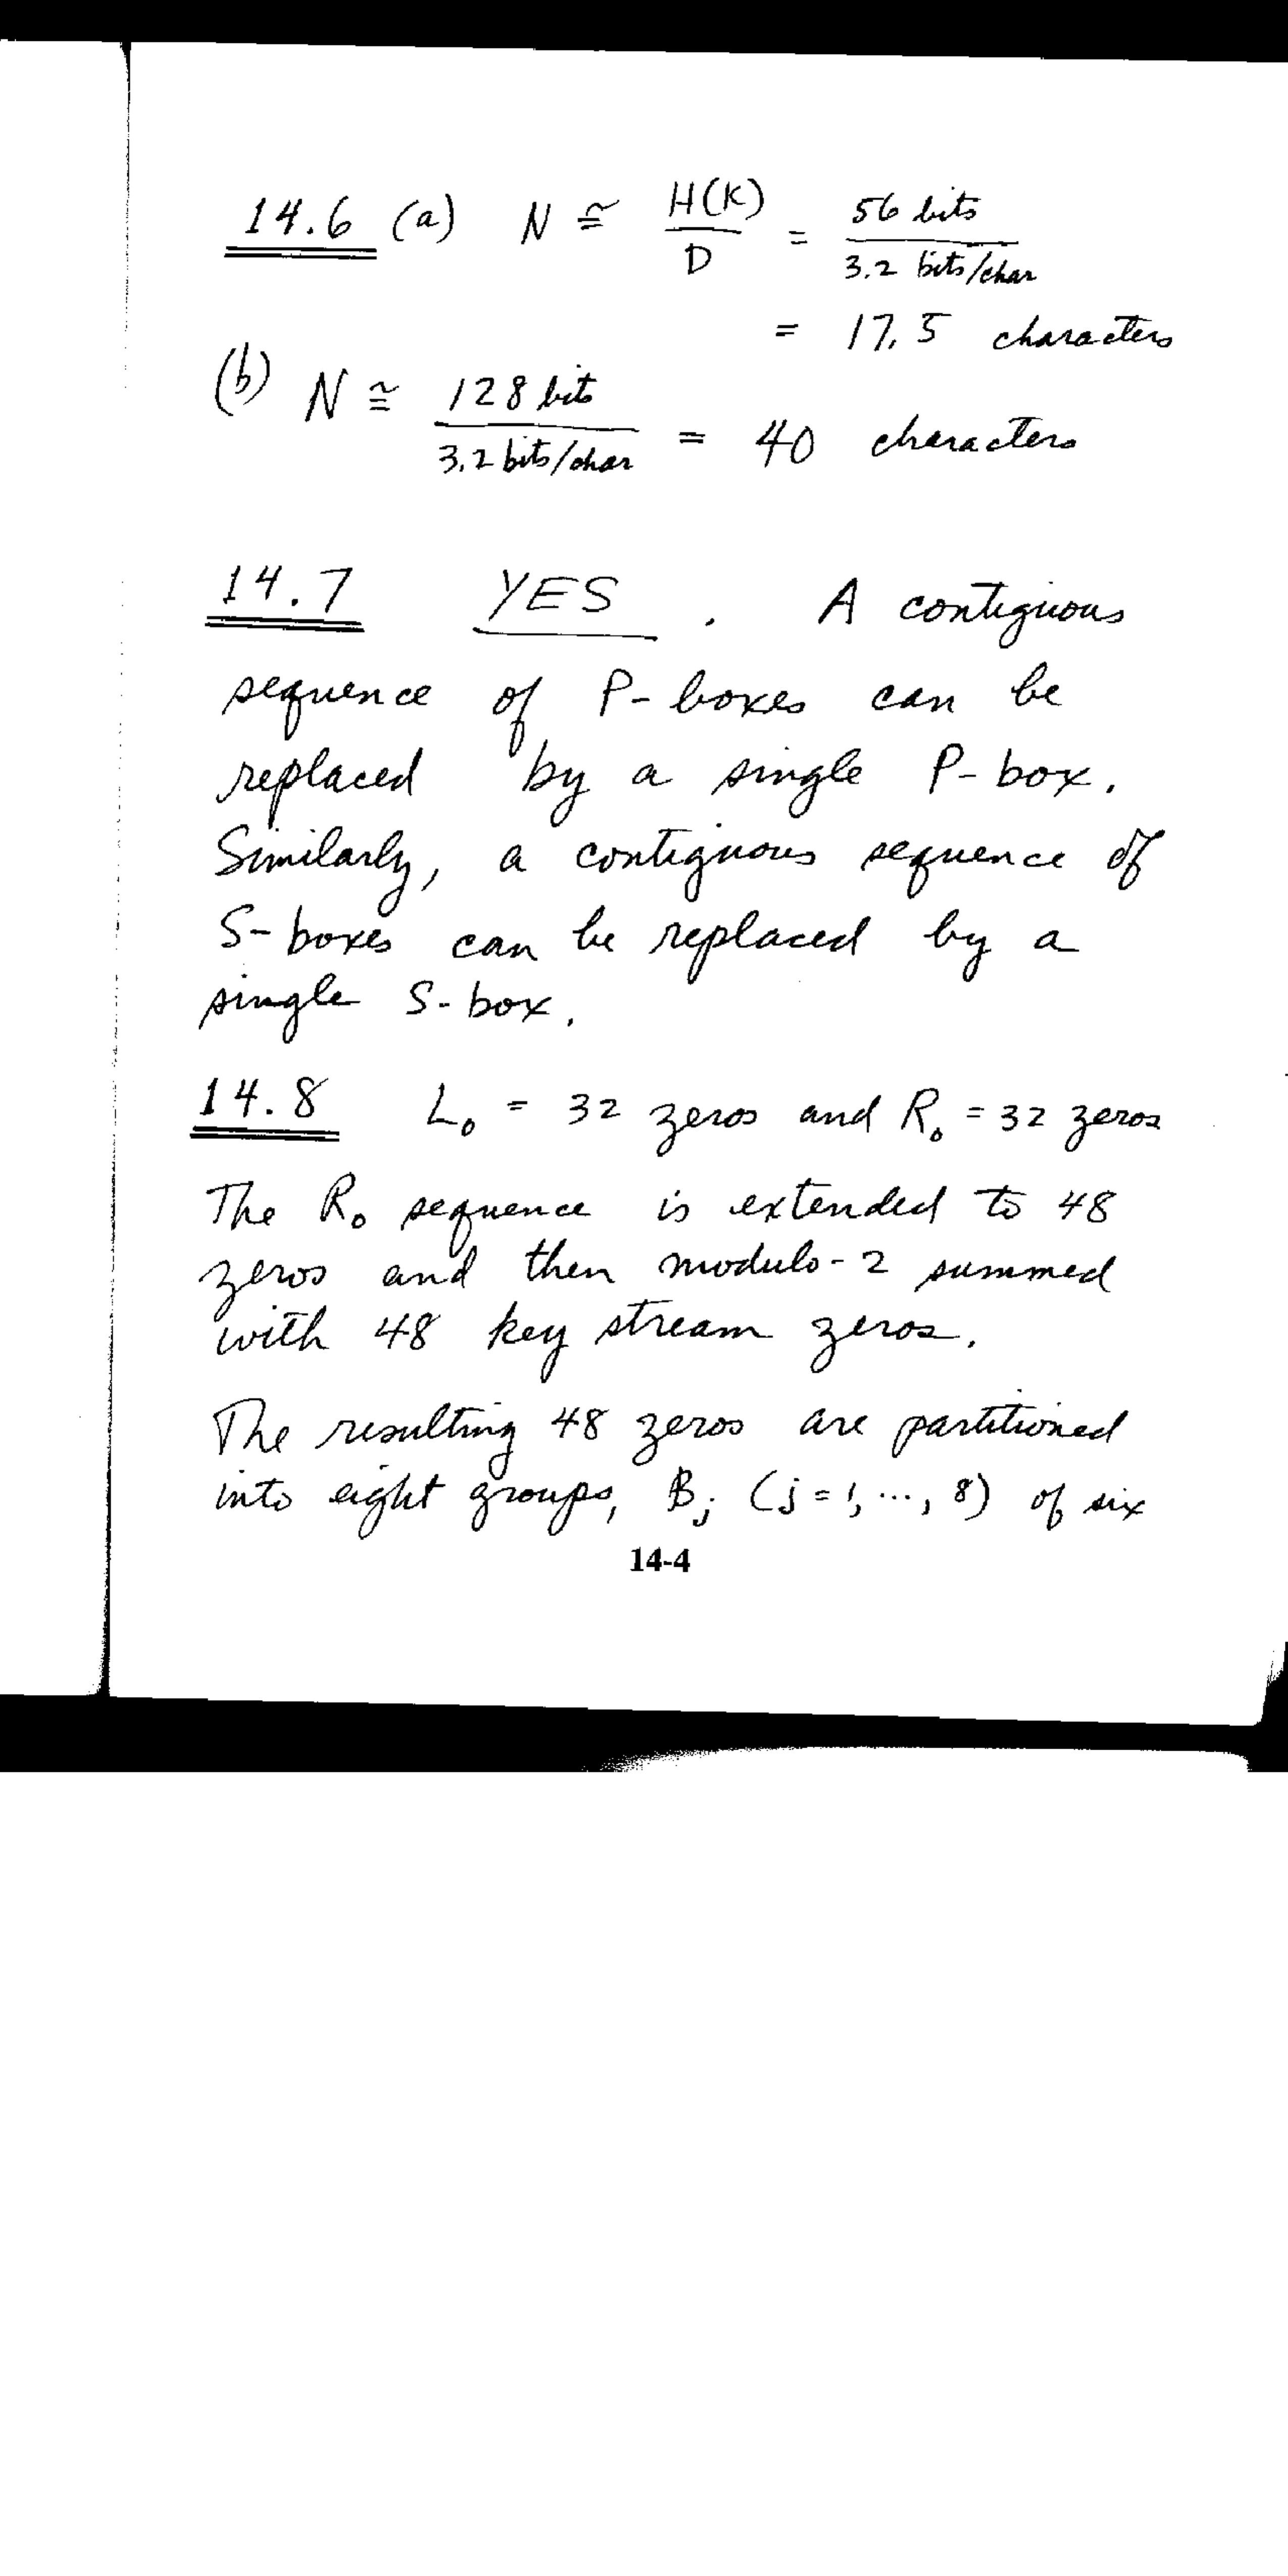 14.6 (a) N ≅ H(K)/D = 56 bits / 3.2 bits/char
= 17.5 characters
(b) N ≅ 128 bits / 3.2 bits/char = 40 characters
14.7 YES. A contiguous
sequence of P-boxes can be
replaced by a single P-box.
Similarly, a contiguous sequence of
S-boxes can be replaced by a
single S-box.
14.8 L₀ = 32 zeros and R₀ = 32 zeros
The R₀ sequence is extended to 48
zeros and then modulo-2 summed
with 48 key stream zeros.
The resulting 48 zeros are partitioned
into eight groups, Bⱼ (j = 1, ..., 8) of six
14-4